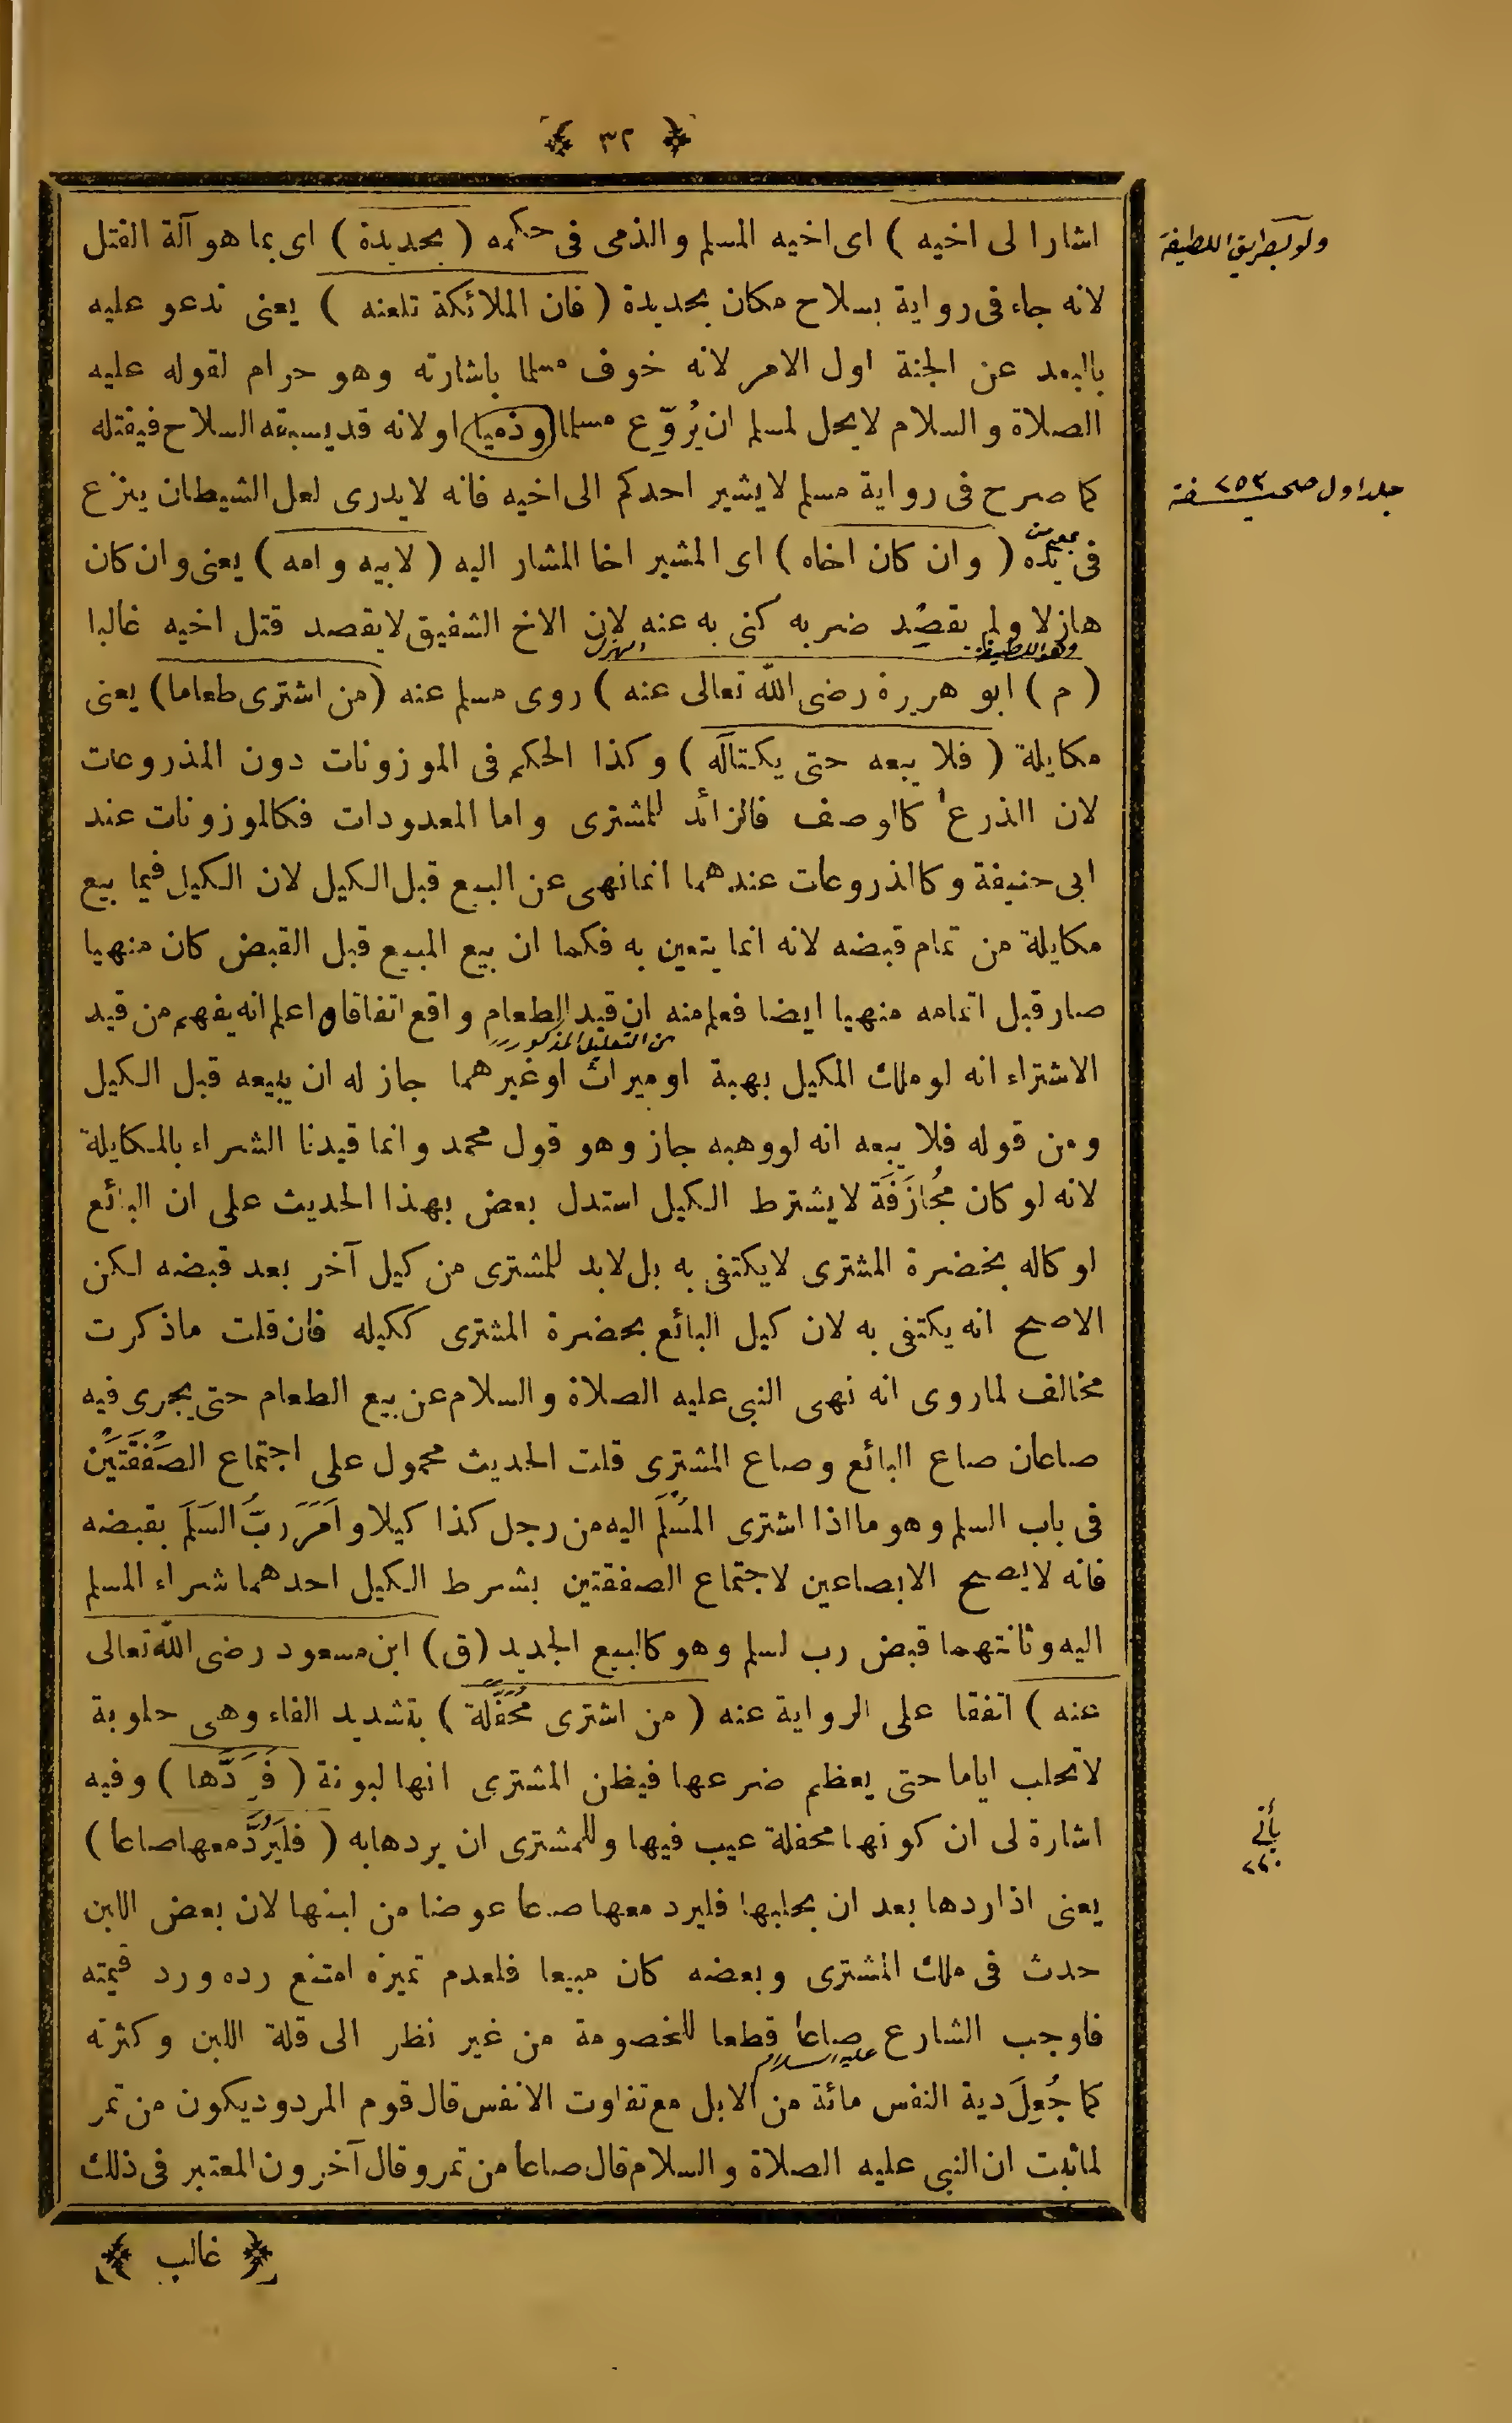 ﴿ ٣٢ ﴾
اشارا لى اخيه ) اى اخيه المسلم والذمى فى حكمه ( بحديدة ) اى بما هو آلة القتل
ولو بطريق اللطيفة
لانه جاء فى رواية بسلاح مكان بحديدة ( فان الملائكة تلعنه ) يعنى تدعو عليه
بالبعد عن الجنة اول الامر لانه خوف مسلما باشارته وهو حرام لقوله عليه
الصلاة والسلام لا يحل لمسلم ان يُرَوِّع مسلما (وذميا) او لانه قد يسبقه السلاح فيقتله
كما صرح فى رواية مسلم لا يشير احدكم الى اخيه فانه لا يدرى لعل الشيطان ينزع
جلد اول صحيفة ٢٥٣
بمعنى من
فى يده ( وان كان اخاه ) اى المشير اخا المشار اليه ( لابيه وامه ) يعنى وان كان
هازلا ولم يقصُد ضربه كنى به عنه لان الاخ الشفيق لا يقصد قتل اخيه غالبا
وهو اللطيفة الهزل
( م ) ابو هريرة رضى الله تعالى عنه ) روى مسلم عنه ( من اشترى طعاما ) يعنى
مكايلة ( فلا يبعه حتى يكتاله ) وكذا الحكم فى الموزونات دون المذروعات
لان الذرع كالوصف فالزائد للمشترى واما المعدودات فكالموزونات عند
ابى حنيفة وكالذروعات عندهما انما نهى عن البيع قبل الكيل لان الكيل فيما بيع
مكايلة من تمام قبضه لانه انما يتعين به فكما ان بيع المبيع قبل القبض كان منهيا
صار قبل اتمامه منهيا ايضا فعلم منه ان قيد الطعام واقع اتفاقا واعلم انه يفهم من قيد
من التعليل المذكور
الاشتراء انه لو ملك المكيل بهبة او ميراث او غيرهما جاز له ان يبيعه قبل الكيل
ومن قوله فلا يبعه انه لو وهبه جاز وهو قول محمد وانما قيدنا الشراء بالمكايلة
لانه لو كان مُجازَفَة لا يشترط الكيل استدل بعض بهذا الحديث على ان البائع
لو كاله بحضرة المشترى لا يكتفى به بل لابد للمشترى من كيل آخر بعد قبضه لكن
الاصح انه يكتفى به لان كيل البائع بحضرة المشترى ككيله فان قلت ما ذكرت
مخالف لما روى انه نهى النبى عليه الصلاة والسلام عن بيع الطعام حتى يجرى فيه
صاعان صاع البائع وصاع المشترى قلت الحديث محمول على اجتماع الصَفْقَتَيْن
فى باب السلم وهو ما اذا اشترى المُسْلَم اليه من رجل كذا كيلا وامَرَ ربَّ السَلَم بقبضه
فانه لا يصح الا بصاعين لاجتماع الصفقتين بشرط الكيل احدهما شراء المسلم
اليه وثانتهما قبض رب لسلم وهو كالبيع الجديد ( ق ) ابن مسعود رضى الله تعالى
عنه ) اتفقا على الرواية عنه ( من اشترى مُحَفَّلَة ) بتشديد الفاء وهى حلوبة
لا تحلب اياما حتى يعظم ضرعها فيظن المشترى انها لبونة ( فَرَدَّها ) وفيه
اشارة لى ان كونها محفلة عيب فيها وللمشترى ان يردها به ( فليَرُدَّ معها صاعا )
يأتى
٢٢٠
يعنى اذا ردها بعد ان يحلبها فليرد معها صاعا عوضا من لبنها لان بعض اللبن
حدث فى ملك المشترى وبعضه كان مبيعا فلعدم تميزه امتنع رده ورد قيمته
فاوجب الشارع صاعا قطعا للخصومة من غير نظر الى قلة اللبن وكثرته
عليه السلام
كما جُعِلَ دية النفس مائة من الابل مع تفاوت الانفس قال قوم المردود يكون من تمر
لما ثبت ان النبى عليه الصلاة والسلام قال صاعا من تمر وقال آخرون المعتبر فى ذلك
﴿ غالب ﴾